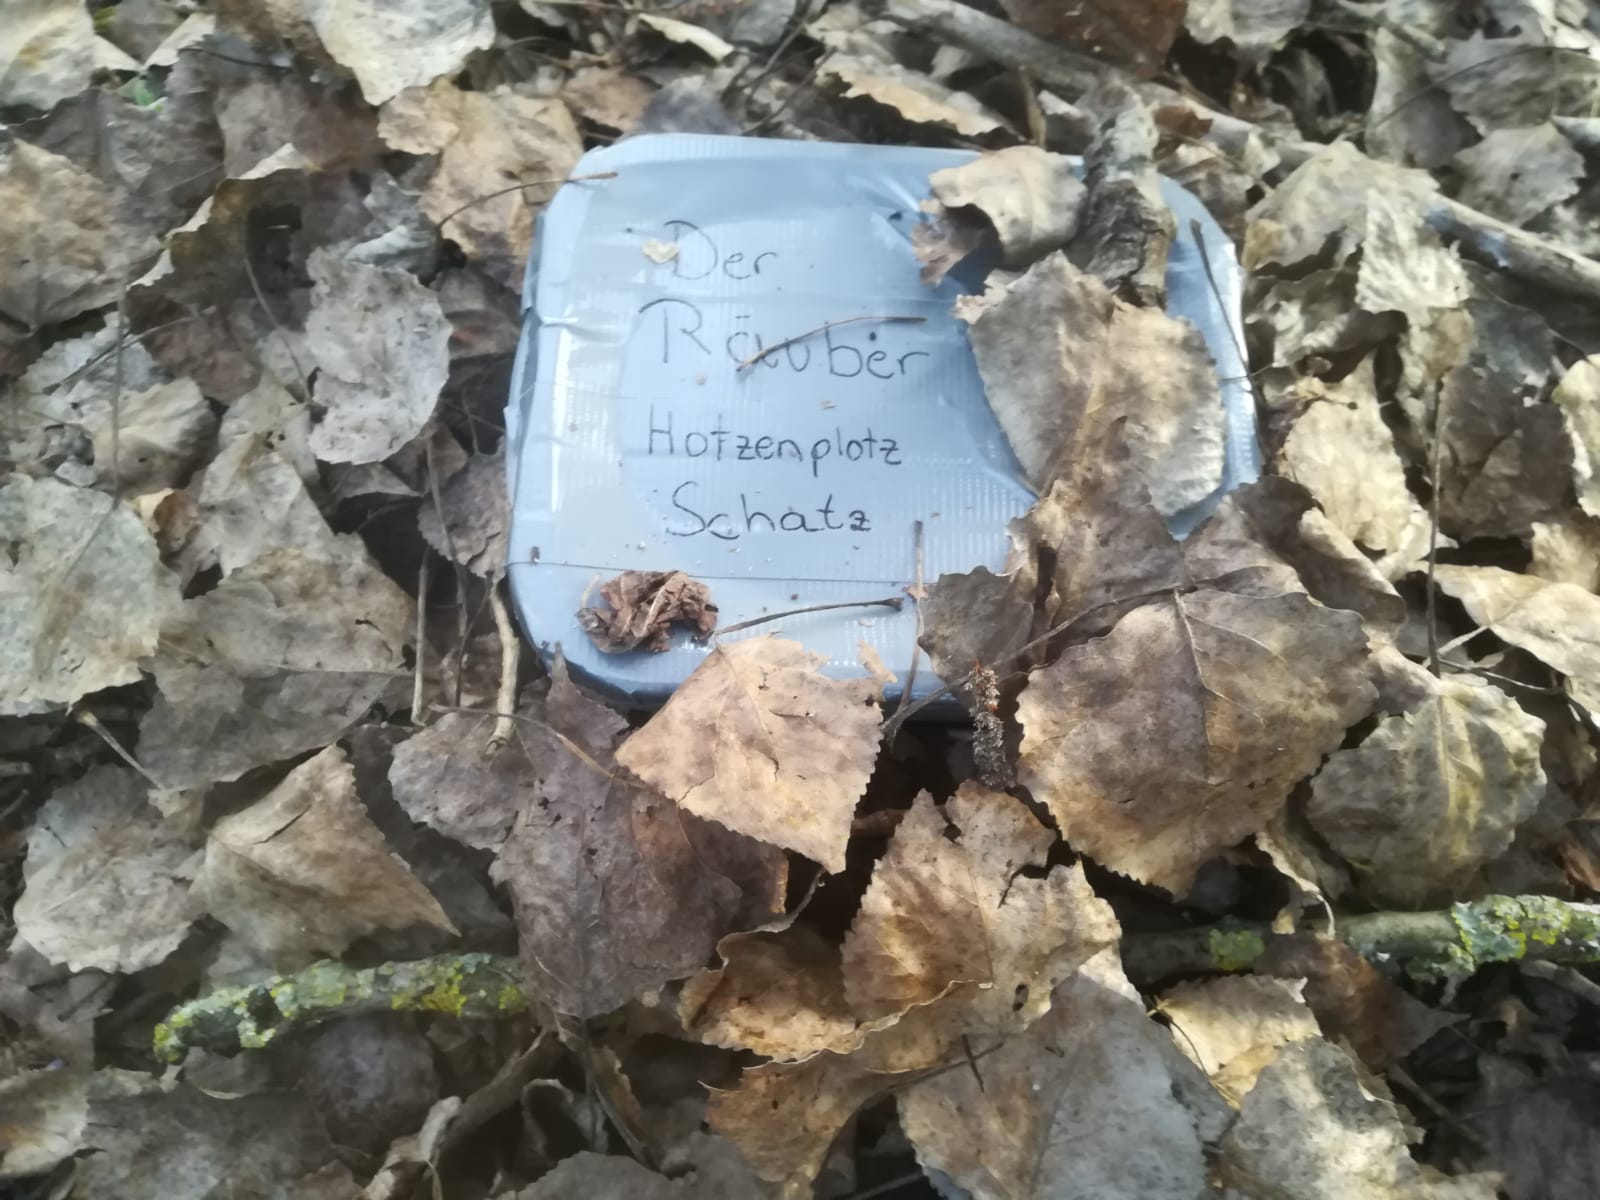 Der
Räuber
Hotzenplotz
Schatz